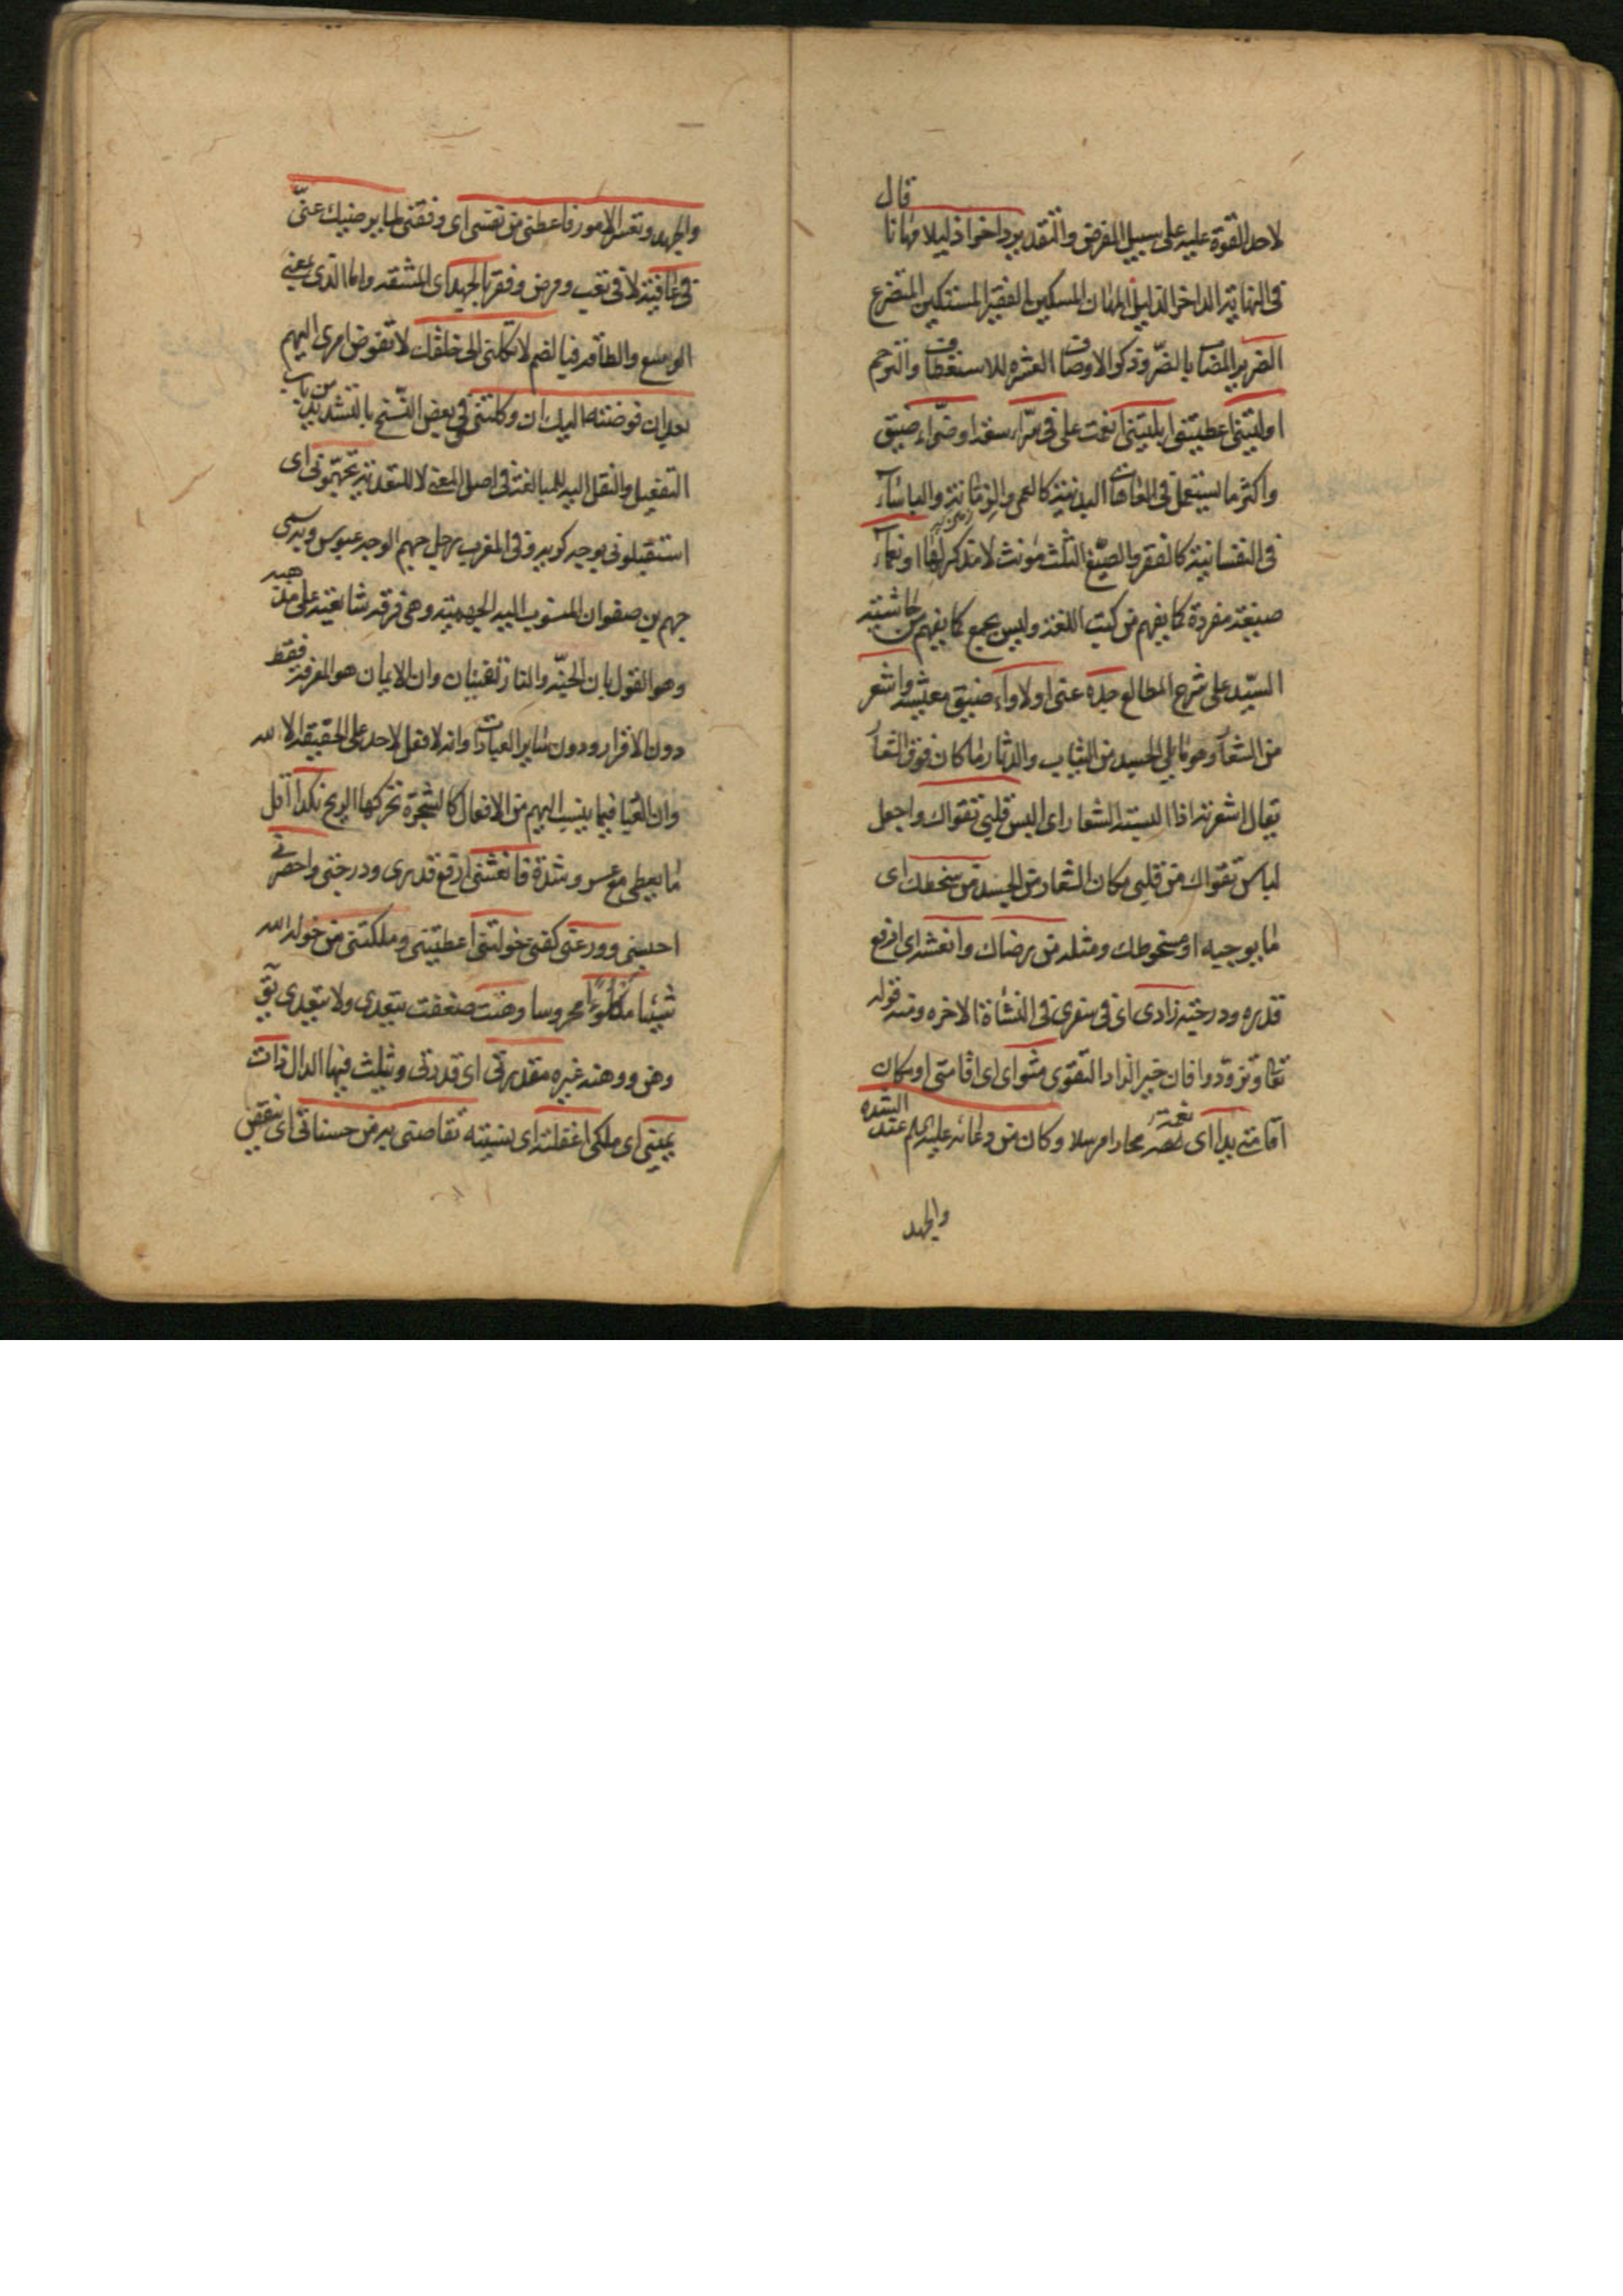 لاحد القوة عليه على سبيل الفرض والتقدير داخرا ذليلا مهانا قال
فى النهاية الداخر الذليل المهان المسكين الفقير المستكين المتضرع
الضرير المضاب بالضرّ وذكر الاوصاف العشره للاستعطاف والترحم
اوليتنى اعطيتنى ابليتنى انعمت على فى سرّاء سعة او ضرّاء ضيق
واكثر ما يستعمل فى العاهات البدنية كالعمى والزمانة والباساء
فى النفسانية كالفقر والصيغ الثلث مونث لا مذكر لها او نعماء
صيغة مفردة كما يفهم من كتب اللغة وليس بجمع كما يفهم من حاشية
السيّد على شرح المطالع جدة عنى او لاواء ضيق معيشة واشعر
من الشعار وهو ما يلى الجسد من الثياب والدثار ما كان فوق الشعار
يقال اشعرته اذا البسته الشعار اى البس قلبى تقواك واجعل
لباس تقواك من قلبى مكان الشعار من الجسد من سخطك اى
ما يوجبه او سخوطك ومثله من رضاك وانعشه اى ارفع
قدره ودرجته زادى اى فى سفرى فى النشاة الاخره ومنه قوله
تعالى وتزودوا فان خير الزاد التقوى مثواى اى اقامتى او مكان
اقامتى يدا اى نعمة محادا مرسلا وكان من دعائه عليه السلام عند الشدة
والجهد
والجهد وتعسر الامور فاعطنى من نفسى اى وفقنى لما يرضيك عنّى
فى عافية لا فى تعب ومرض وفقر بالجهد اى المشقه واما الذى بمعنى
الوسع والطاقه فبالضم لا تكلنى الى خلقك لا تفوض امرى اليهم
بعد ان فوضته اليك ان وكلتنى فى بعض النسخ بالتشديد من باب
التفعيل والنقل اليه للمبالغة فى اصل المعنى لا للتعدية تجهّمونى اى
استقبلونى بوجه كريه وفى المغرب رجل جهم الوجه عبوس وبه سمى
جهم بن صفوان المنسوب اليه الجهمية وهى فرقه شايعته على مذهبه
وهو القول بان الجنّة والنار تفنيان وان الايمان هو المعرفة فقط
دون الاقرار ودون ساير العبادات وانه لا فعل لاحد على الحقيقة الا لله
وان العباد فيما ينسب اليهم من الافعال كالشجرة تحركها الريح نكدا اقل
ما يعطى مع عسر وشدة فانعشنى ارفع قدرى ودرجتى واحصرنى
احبسنى وورعنى كفنى خولتنى اعطيتنى وملكتنى من خوله الله
شيئا مكلوءًا محروسا وهنت ضعفت يتعدى ولا يتعدى يق
وهن ووهنه غيره مقدرتى اى قدرتى ويثلث فيها الدال ذات
يمينى اى ملكى اغفلته اى نسيته تقاصنى به من حسناتى اى تنقص